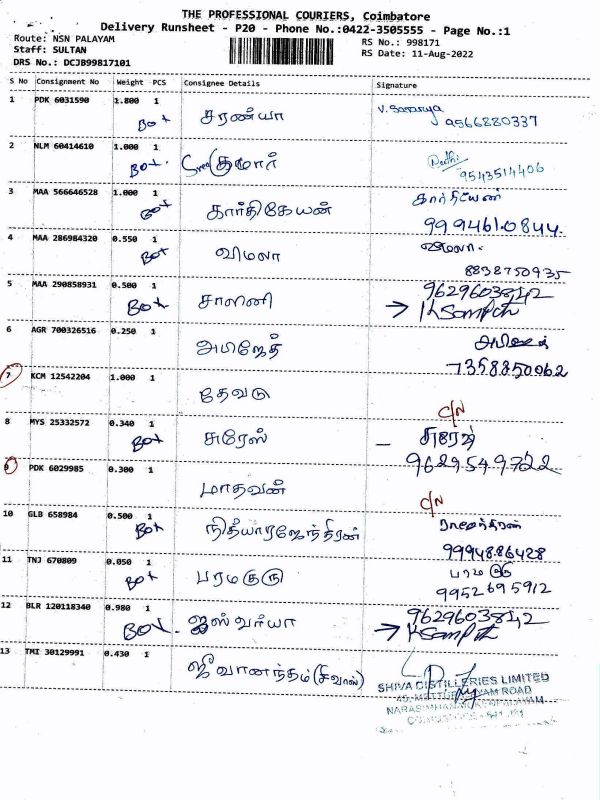 THE PROFESSIONAL COURIERS, Coimbatore
Delivery Runsheet - P20 - Phone No.:0422-3505555 - Page No.:1
Route: NSN PALAYAM
RS No.: 998171
Staff: SULTAN
RS Date: 11-Aug-2022
DRS No.: DCJB99817101
S No Consignment No Weight PCS Consignee Details Signature
1 PDK 6031590 1.800 1 சரண்யா V. Saranya
Box 9566880337
2 NLM 60414610 1.000 1 குமார்
Box. 9543514406
3 MAA 566646528 1.000 1 கார்த்திகேயன்
Box 9994610844.
4 MAA 286984320 0.550 1 விமலா விமலா.
Box 8838750935
5 MAA 290858931 0.500 1 சாலினி 9629603842
Box → K Sampth
6 AGR 700326516 0.250 1 அபிஜேத்
7358850062
7 KCM 12542204 1.000 1 தேவடு
C/N
8 MYS 25332572 0.340 1 சுரேஸ் சுரேஷ்
Box 9629549722
9 PDK 6029985 0.300 1 மாதவன்
C/N
10 GLB 658984 0.500 1 நித்யாராஜேந்திரன் ராஜேந்திரன்
Box 9994886428
11 TNJ 670809 0.050 1 பரமகுரு பரமகுரு
Box 9952695912
12 BLR 120118340 0.980 1 ஐஸ்வர்யா 9629603842
Box. → K Sampth
13 TMI 30129991 0.430 1 ஜீவானந்தம் (சிவாஸ்)
SHIVA DISTILLERIES LIMITED